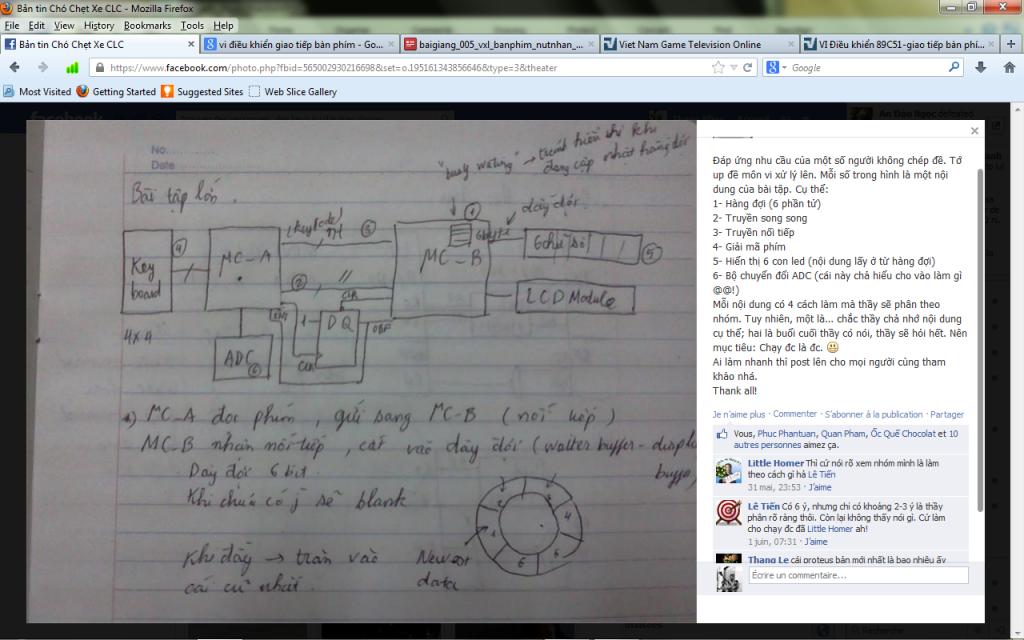 Bản tin Chó Chẹt Xe CLC - Mozilla Firefox
File Edit View History Bookmarks Tools Help
Bản tin Chó Chẹt Xe CLC
vi điều khiển giao tiếp bàn phím - Go...
baigiang_005_vxl_banphim_nutnhan_...
Viet Nam Game Television Online
VI Điều khiển 89C51-giao tiếp bàn phí...
https://www.facebook.com/photo.php?fbid=565002930216698&set=o.195161343856646&type=3&theater
Google
Most Visited Getting Started Suggested Sites Web Slice Gallery
No.
Date
"busy waiting" → tránh hiển thị khi
đang cập nhật hàng đợi
Bài tập lớn.
đây đợi.
(keycode)
nt
3
1
6byte
4
Key
board
MC-A
MC-B
6 chữ số
5
2
//
CLR
LCD Module
4x4
1
D Q
OBF
CLK
ADC
6
a) MC-A đọc phím, gửi sang MC-B (nối tiếp)
MC-B nhận nối tiếp, cất vào dãy đợi (waiter buffer - display
buffer)
Dãy đợi 6 bit.
Khi chưa có j sẽ blank
4
5
6
Khi đầy → tràn vào
cái cũ nhất.
Newest
data
Đáp ứng nhu cầu của một số người không chép đề. Tớ
up đề môn vi xử lý lên. Mỗi số trong hình là một nội
dung của bài tập. Cụ thể:
1- Hàng đợi (6 phần tử)
2- Truyền song song
3- Truyền nối tiếp
4- Giải mã phím
5- Hiển thị 6 con led (nội dung lấy ở từ hàng đợi)
6- Bộ chuyển đổi ADC (cái này chả hiểu cho vào làm gì
@@!)
Mỗi nội dung có 4 cách làm mà thầy sẽ phân theo
nhóm. Tuy nhiên, một là... chắc thầy chả nhớ nội dung
cụ thể; hai là buổi cuối thầy có nói, thầy sẽ hỏi hết. Nên
mục tiêu: Chạy đc là đc.
Ai làm nhanh thì post lên cho mọi người cùng tham
khảo nhá.
Thank all!
Je n'aime plus · Commenter · S'abonner à la publication · Partager
Vous, Phuc Phantuan, Quan Pham, Ốc Quế Chocolat et 10
autres personnes aimez ça.
Little Homer Thì cứ nói rõ xem nhóm mình là làm
theo cách gì hả Lê Tiến
31 mai, 23:53 · J'aime
Lê Tiến Có 6 ý, nhưng chỉ có khoảng 2-3 ý là thầy
phân rõ ràng thôi. Còn lại không thấy nói gì. Cứ làm
cho chạy đc đã Little Homer ah!
1 juin, 07:31 · J'aime
Thang Le cái proteus bản mới nhất là bao nhiêu ấy
Écrire un commentaire...